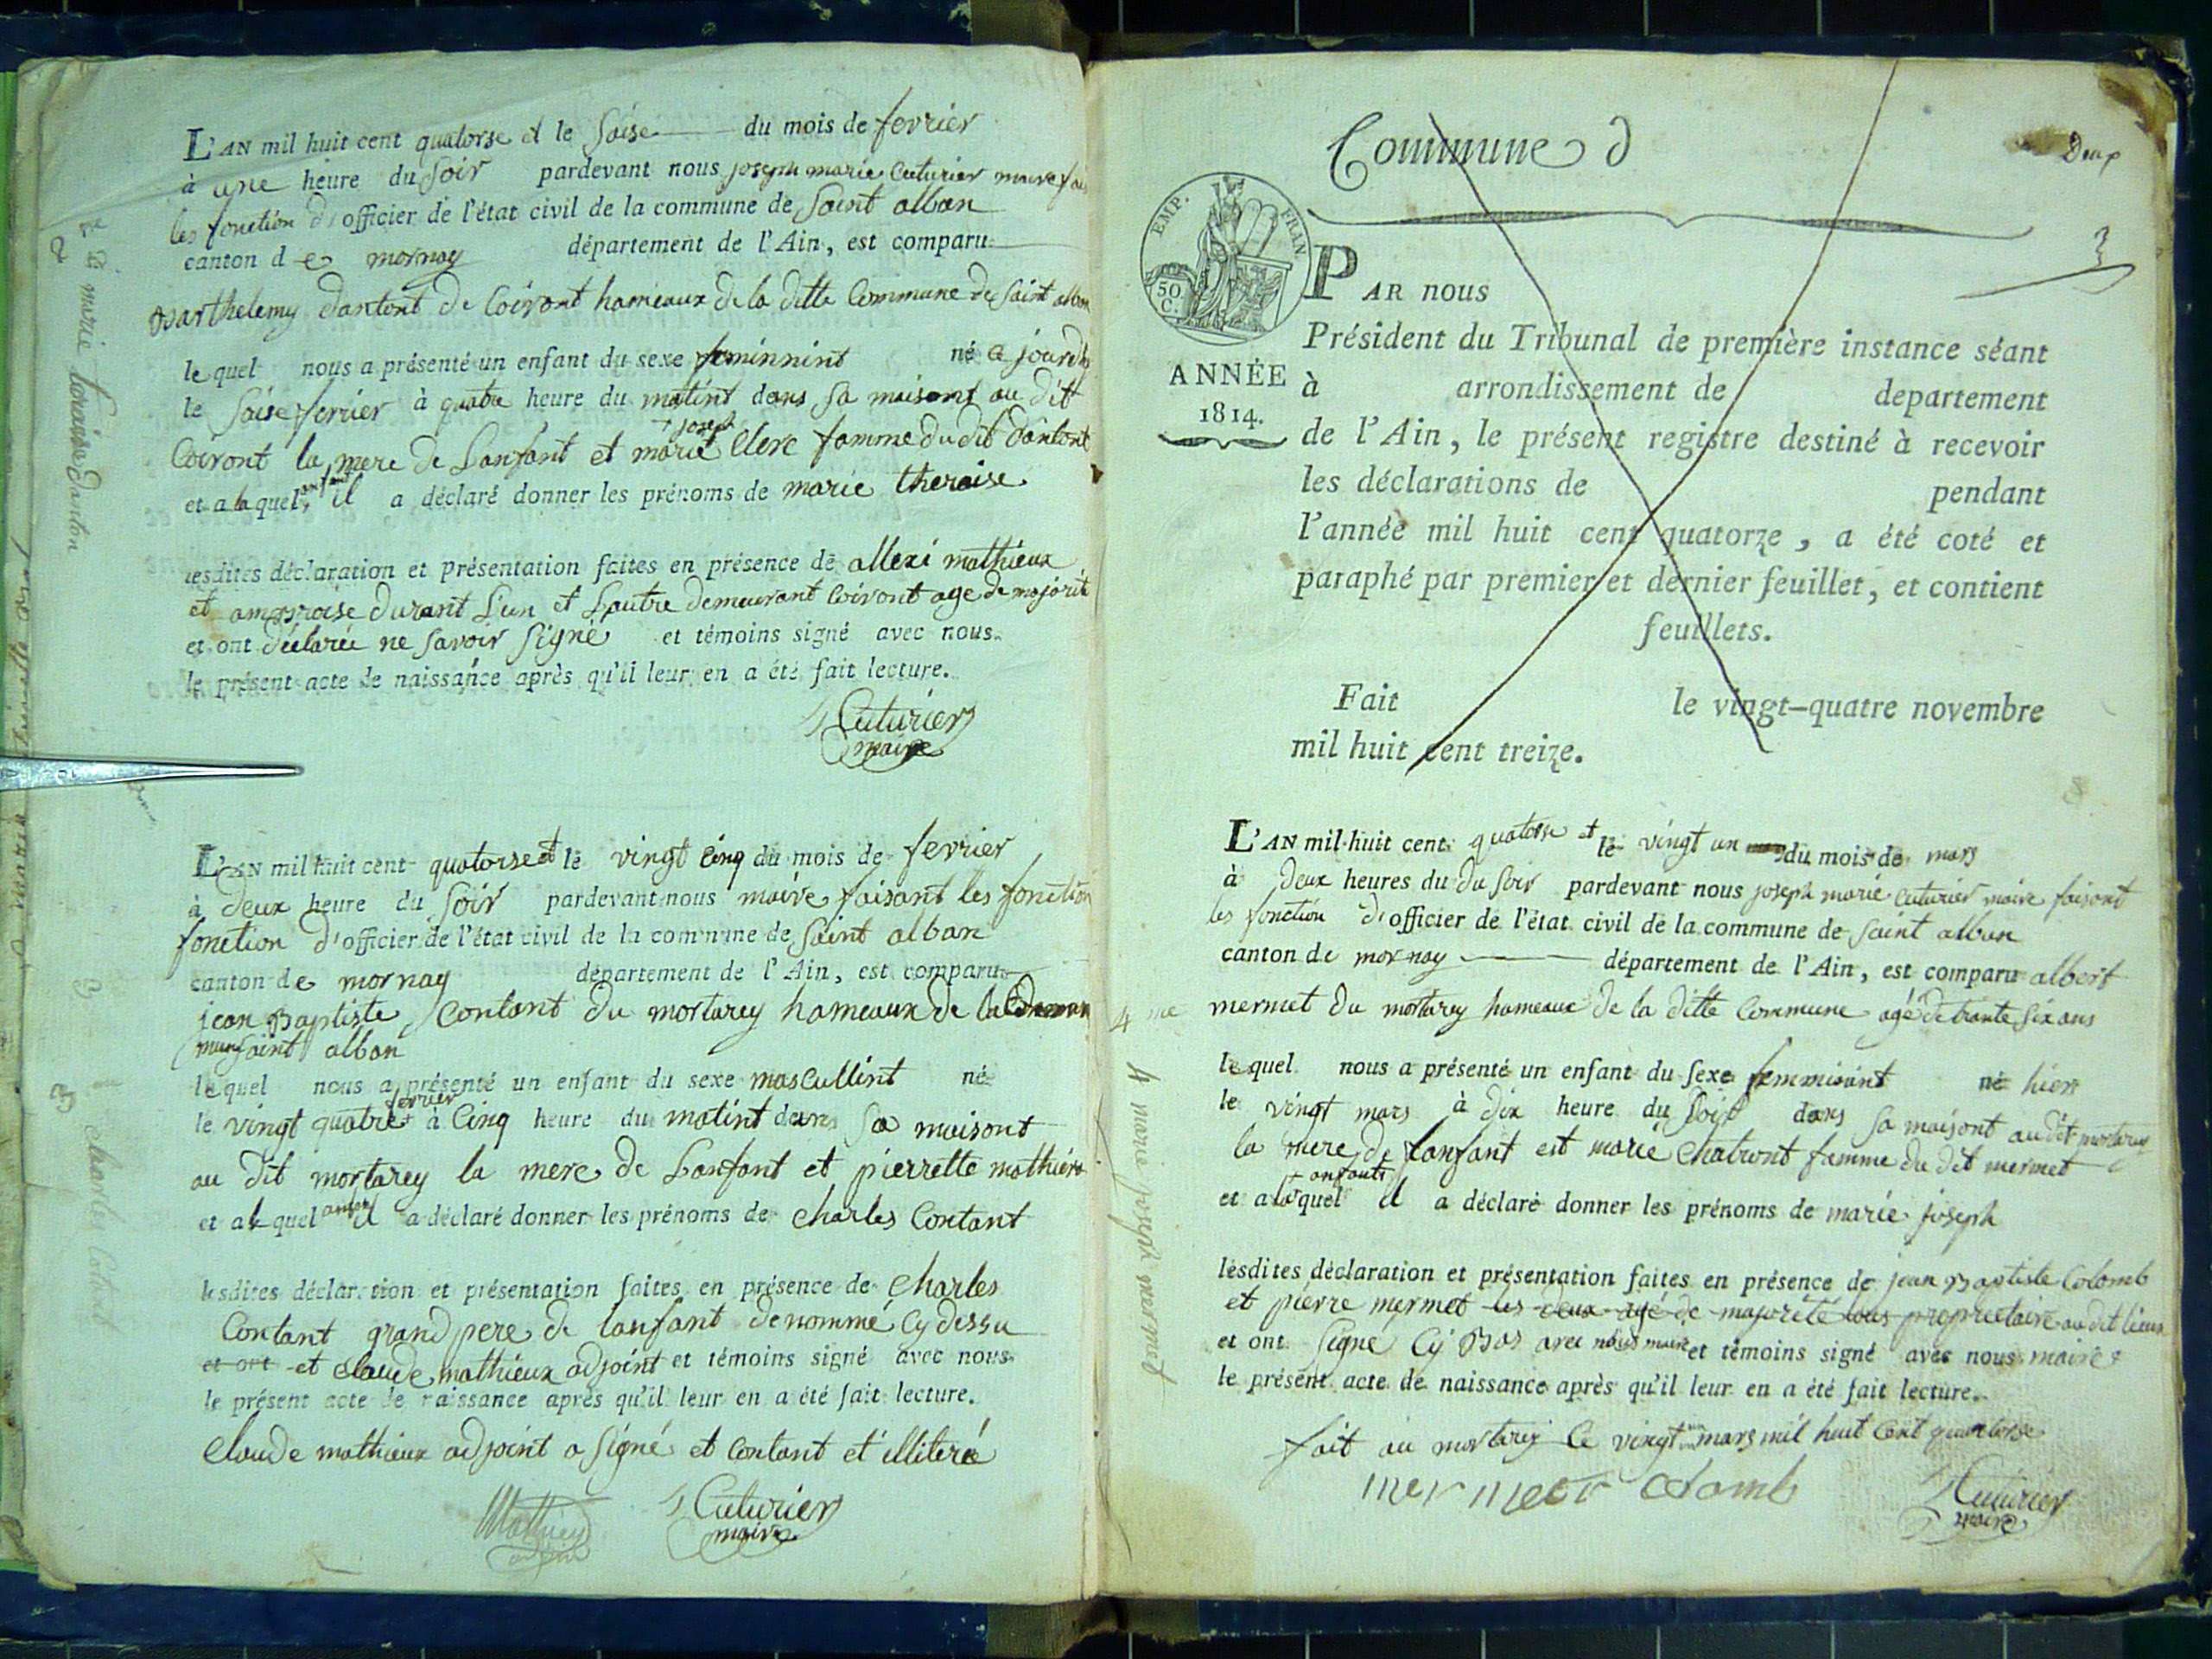 L'AN mil huit cent quatorse et le Saise du mois de fevrier
à une heure du Soir pardevant nous joseph marie Cuturier maire
les fonction d'officier de l'état civil de la commune de Saint alban
canton de mornay département de l'Ain, est comparu
Barthelemy dantont de Coiront hameaux de la ditte Commune de Saint alban
lequel nous a présenté un enfant du sexe feminnint né a jourdh
le Saise fevrier à quatre heure du matint dans Sa maisont au dit
Coiront la mere de Lanfant et marie joseph Clerc famme du dit dantont
et a laquel anfant il a déclaré donner les prénoms de marie theraise
lesdites déclaration et présentation faites en présence de allexi mathieux
et ambroise durant L'un et Lautre demeurant Coiront age de majorité
et ont déclarée ne Savoir Signé et témoins signé avec nous.
le présent acte de naissance après qu'il leur en a été fait lecture.
Cuturier
maire
2
marie theraise danton
L'AN mil huit cent quatorse et le vingt Cinq du mois de fevrier
à deux heure du Soir pardevant nous maire faisant les fonction
fonction d'officier de l'état civil de la commune de Saint alban
canton de mornay département de l'Ain, est comparu
jean Baptiste Contant du mortarey hameaux de la
Saint alban
lequel nous a présenté un enfant du sexe mascullint né
le vingt quatre fevrier à Cinq heure du matint dans Sa maisont
au dit mortarey la mere de Lanfant et pierrette mathieux
et a le quel anfant il a déclaré donner les prénoms de Charles Contant
lesdites déclaration et présentation faites en présence de Charles
Contant grand pere de lanfant denommé Cy dessu
et ont et Claude mathieux adjoint et témoins signé avec nous
le présent acte de naissance après qu'il leur en a été fait lecture.
Claude mathieux adjoint a Signé et Contant et illiteré
Mathieu
Cuturier
maire
3
Charle
Commune d
Deux
EMP. FRAN
50
C.
ANNÉE
1814.
PAR nous
Président du Tribunal de première instance séant
à arrondissement de departement
de l'Ain, le présent registre destiné à recevoir
les déclarations de pendant
l'année mil huit cent quatorze, a été coté et
paraphé par premier et dernier feuillet, et contient
feuillets.
Fait le vingt-quatre novembre
mil huit cent treize.
L'AN mil huit cent quatorse et le vingt un du mois de mars
à deux heures du du Soir pardevant nous joseph marie Cuturier maire faisant
les fonction d'officier de l'état civil de la commune de Saint alban
canton de mornay département de l'Ain, est comparu albert
mermet du mortarey hameaux de la ditte Commune agé de trante Six ans
lequel nous a présenté un enfant du sexe femminint né hier
le vingt mars à dix heure du Soir dans Sa maisont au dit mortarey
la mere de lanfant est marie Chatront famme du dit mermet
et a laquel anfant il a déclaré donner les prénoms de marie joseph
lesdites déclaration et présentation faites en présence de jean Baptiste Colomb
et pierre mermet les deux agé de majorité tous proprietaire au dit lieux
et ont Signe Cy Bas avec nous maire et témoins signé avec nous maire
le présent acte de naissance après qu'il leur en a été fait lecture.
fait au mortarey le vingt un mars mil huit Cent quatorse
mermet Colomb
Cuturier
maire
4 me
4 marie joseph mermet